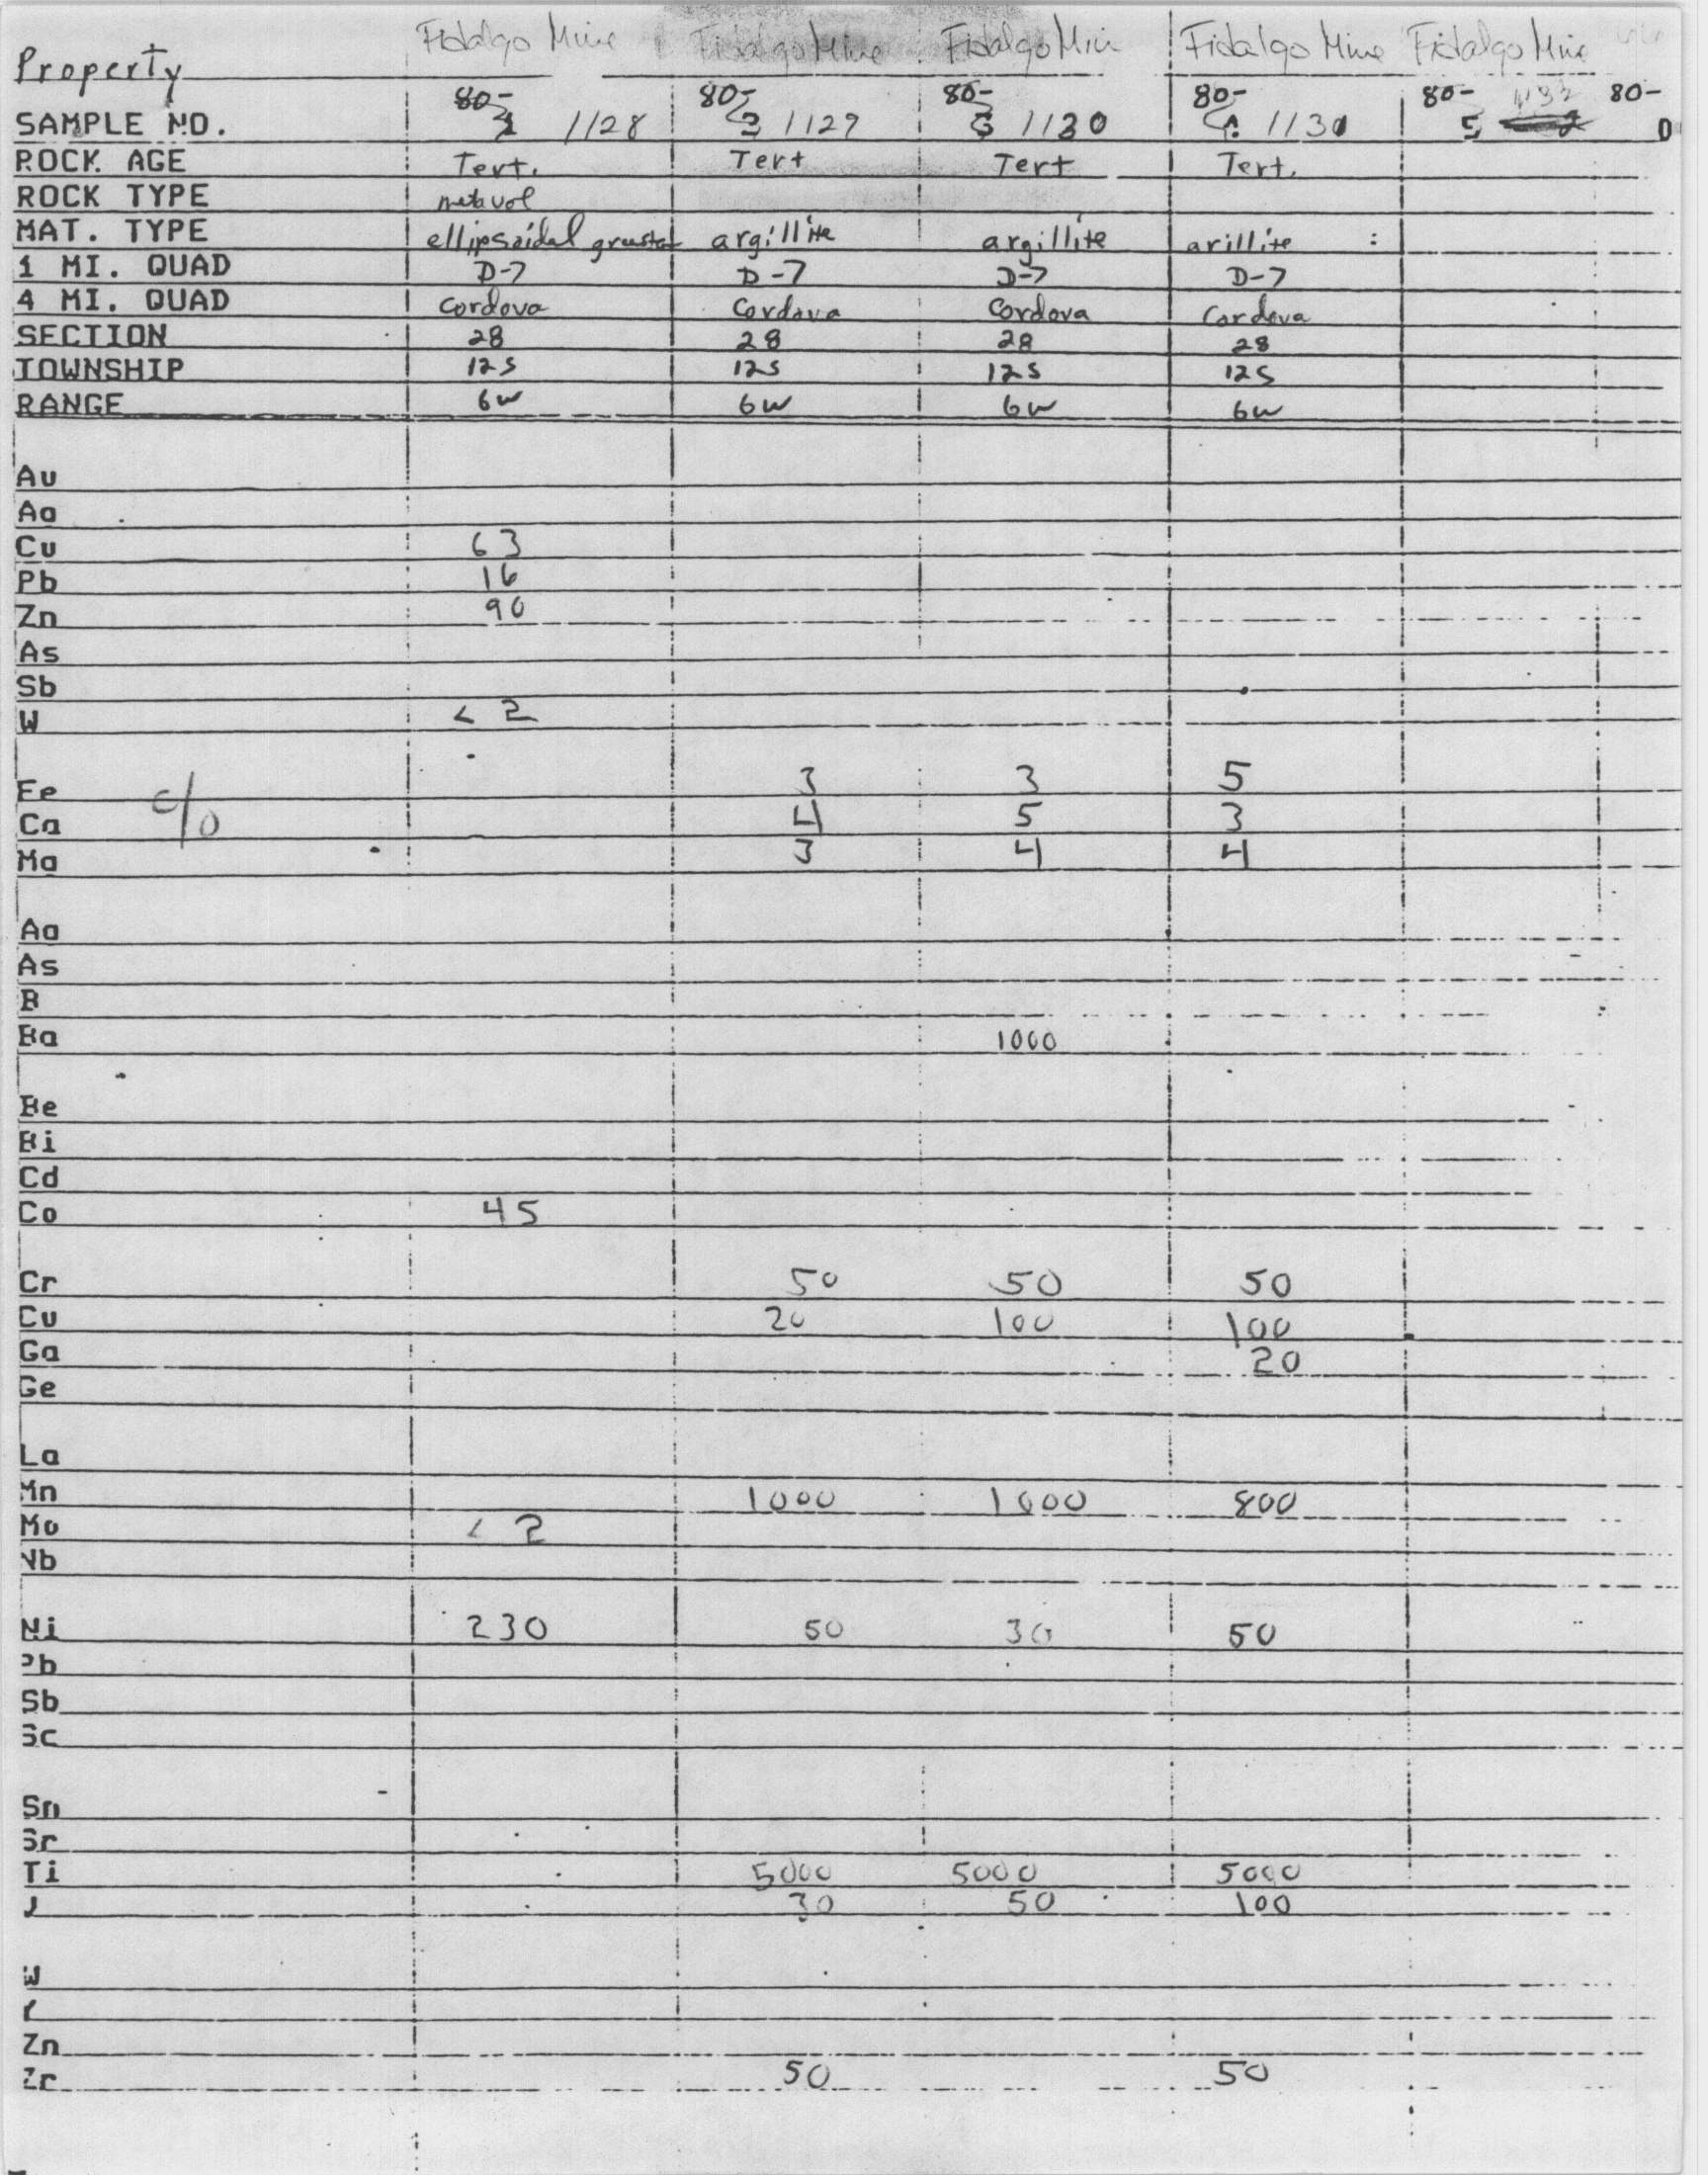 Property Fidalgo Mine Fidalgo Mine Fidalgo Min Fidalgo Mine Fidalgo Mine
80- 80- 80- 80- 80- 80-
SAMPLE NO. 1 1128 2 1129 3 1130 1131 5 0
ROCK AGE Tert. Tert Tert Tert.
ROCK TYPE metavol
MAT. TYPE ellipsoidal argillite argillite arillite :
1 MI. QUAD D-7 D-7 D-7 D-7
4 MI. QUAD Cordova Cordova Cordova Cordova
SECTION 28 28 28 28
TOWNSHIP 12S 12S 12S 12S
RANGE 6W 6W 6W 6W
Au
Ag
Cu 63
Pb 16
Zn 90
As
Sb
W < 2
Fe 3 3 5
Ca 4 5 3
Mg 3 4 4
Ag
As
B
Ba 1000
Be
Bi
Cd
Co 45
Cr 50 50 50
Cu 20 100 100
Ga 20
Ge
La
Mn 1000 1000 800
Mo < 2
Nb
Ni 230 50 30 50
Pb
Sb
Sc
Sn
Sr
Ti 5000 5000 5000
30 50 100
W
Zn
Zr 50 50